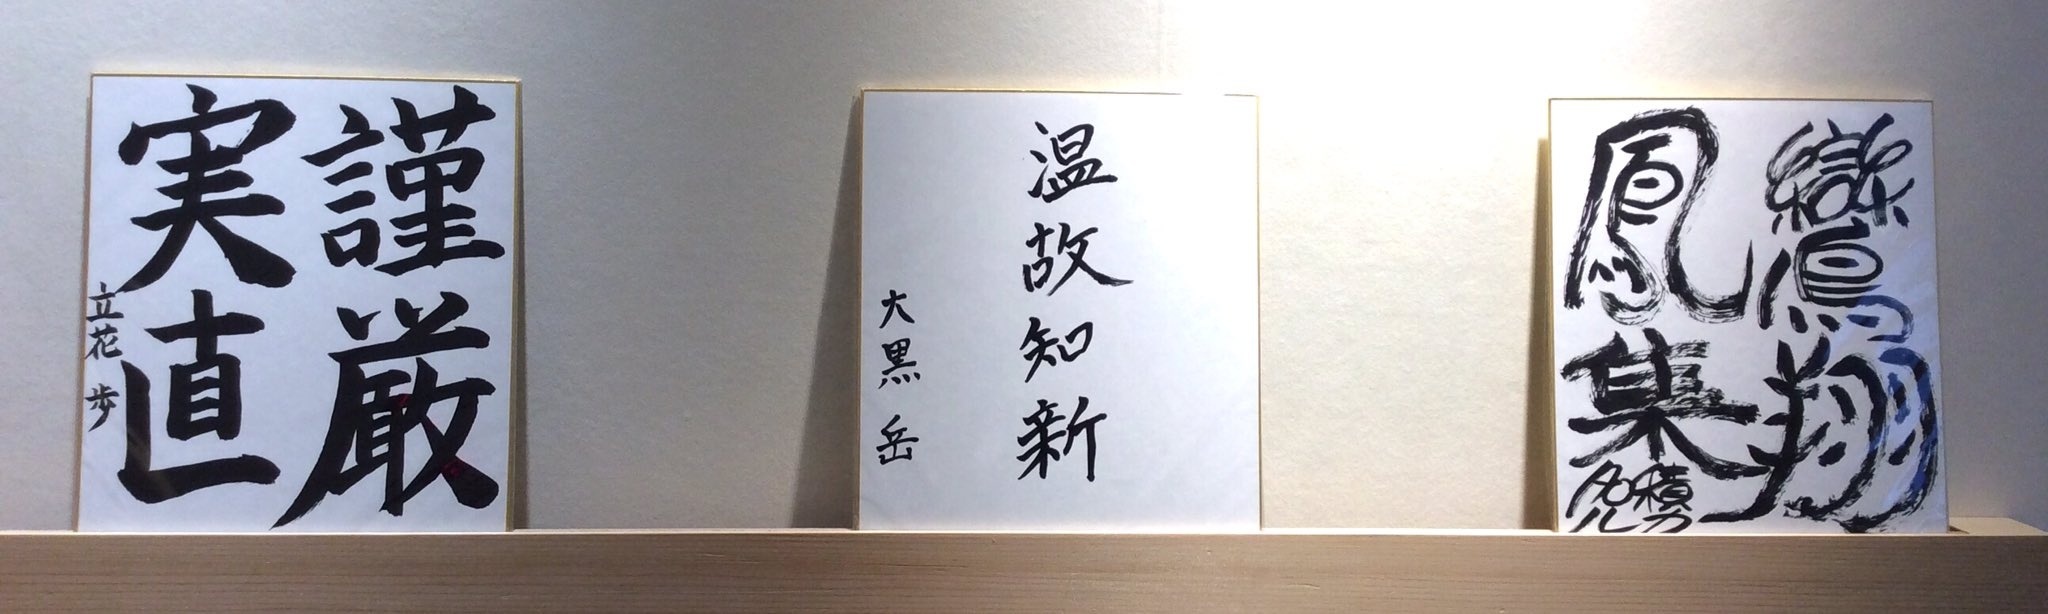 謹厳
実直
立花 歩
温故知新
大黒 岳
鸞翔
鳳集